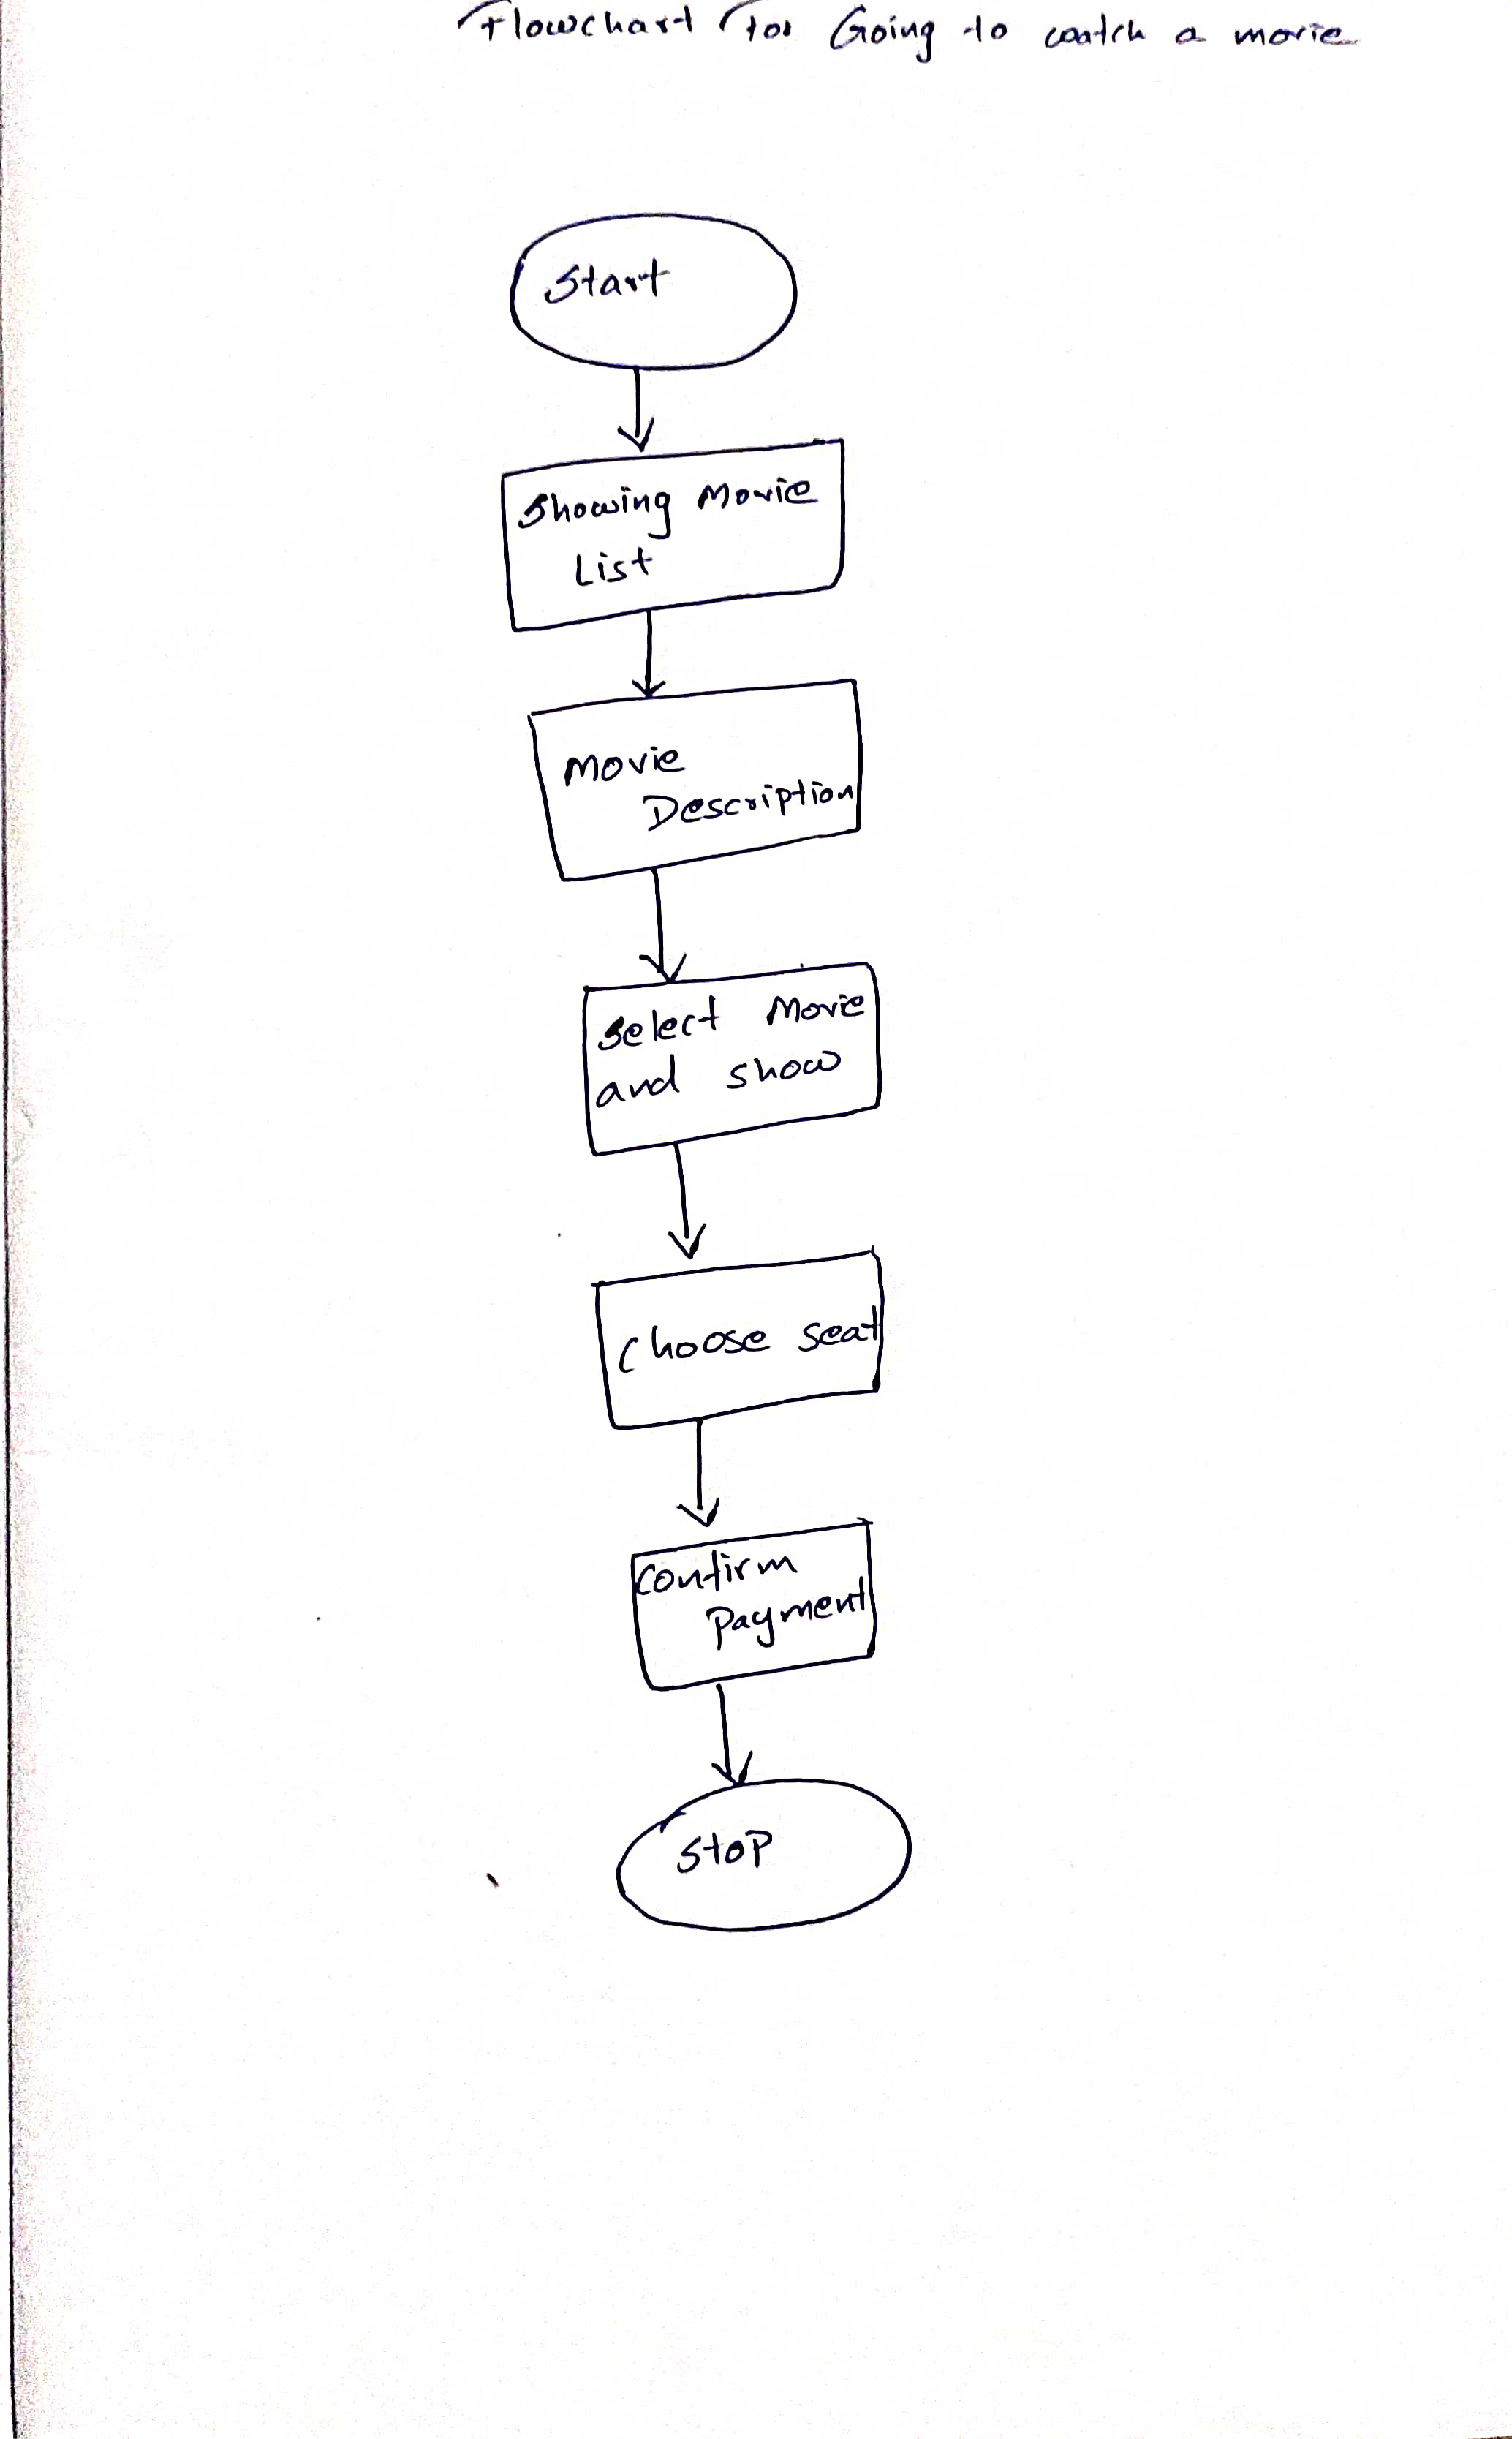 Flowchart For Going to watch a movie
Start
Showing Movie
List
Movie
Description
Select Movie
and show
Choose seat
Confirm
Payment
Stop